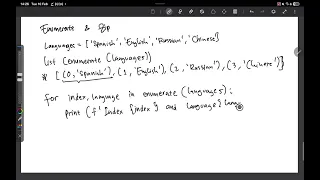 14:28 Tue 10 Feb
Enumerate & Zip
Languages = ['Spanish', 'English', 'Russian', 'Chinese']
list (enumerate (languages))
* [(0, 'Spanish'), (1, 'English'), (2, 'Russian'), (3, 'Chinese')]
for index, language in enumerate (languages):
print (f' Index {index} and language {lang